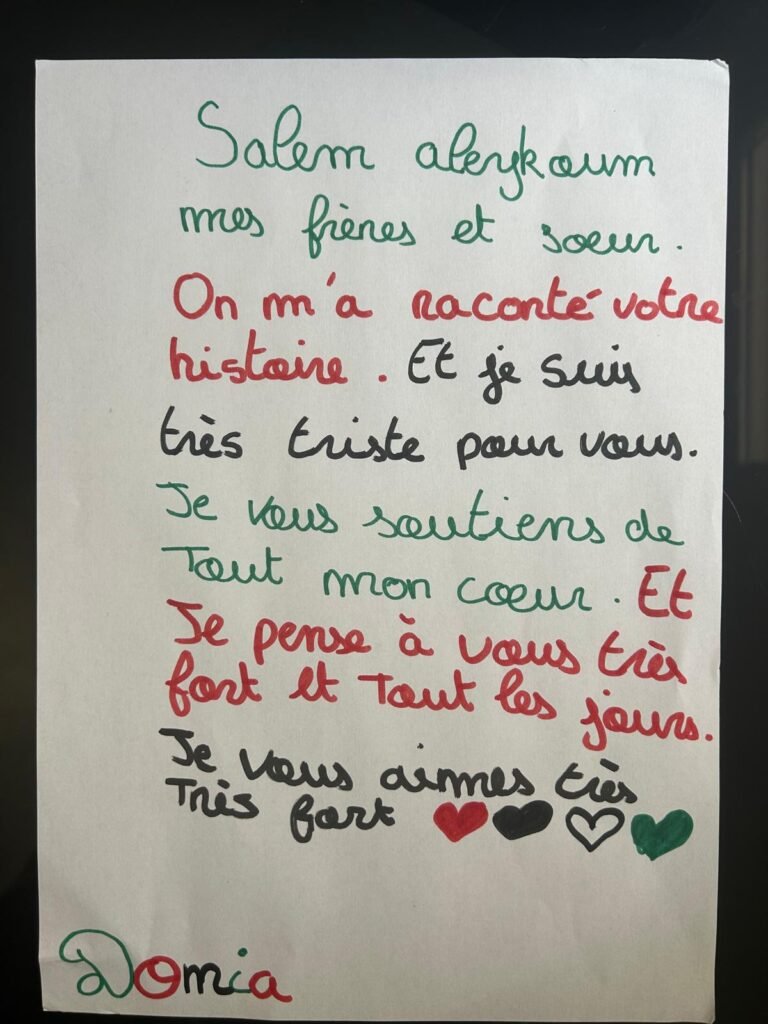 Salem aleykoum
mes frères et soeur.
On m'a raconté votre
histoire. Et je suis
très triste pour vous.
Je vous soutiens de
Tout mon coeur. Et
Je pense à vous très
fort et Tout les jours.
Je vous aimes très
Très fort
Domia